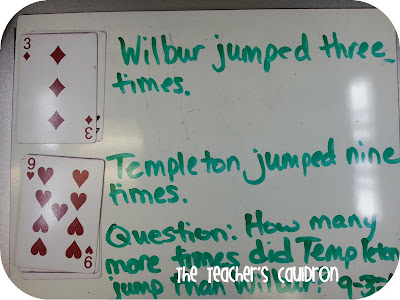 3
Wilbur jumped three
times.
3
9
Templeton jumped nine
times.
Question: How many
more times did Templeton
jump than Wilbur? 9-3=
9
The Teacher's Cauldron